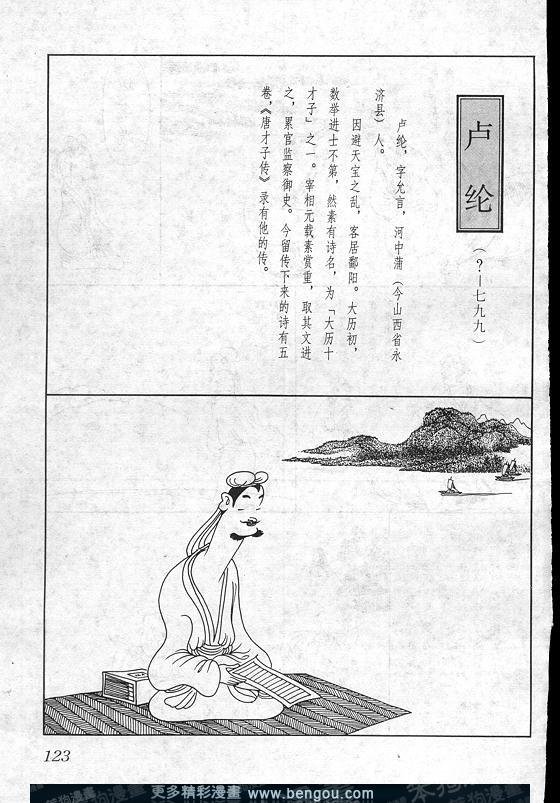 卢纶
（?—七九九）
卢纶，字允言，河中蒲（今山西省永
济县）人。
因避天宝之乱，客居鄱阳。大历初，
数举进士不第，然素有诗名，为「大历十
才子」之一。宰相元载素赏重，取其文进
之，累官监察御史。今留传下来的诗有五
卷，《唐才子传》录有他的传。
123
更多精彩漫畫 www.bengou.com